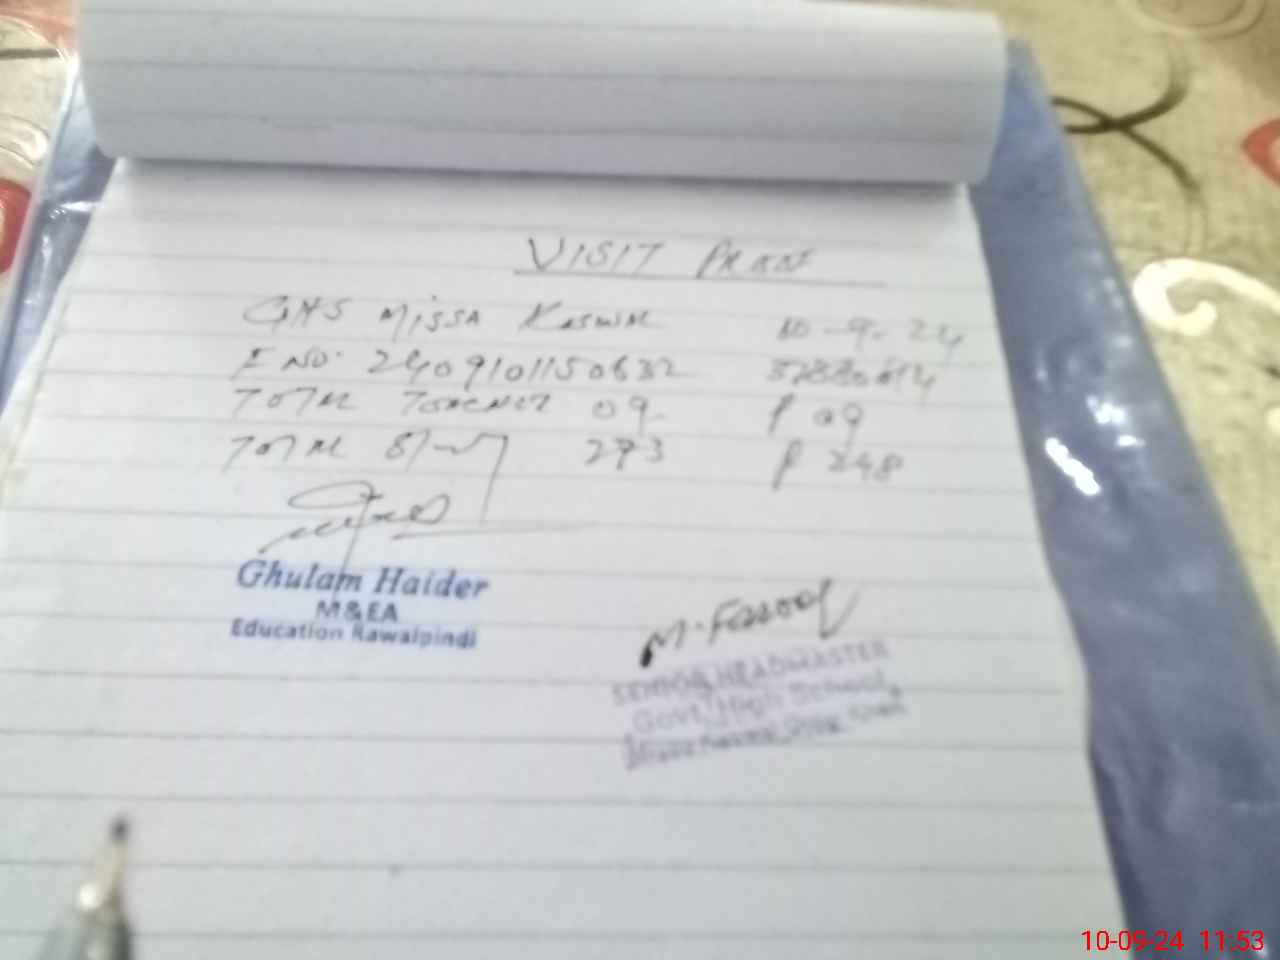 VISIT PROOF
GHS MISSA KASWAL 10-9-24
E NO. 2409101150632
TOTAL TEACHER 09 P 09
TOTAL 273 P 248
Ghulam Haider
M&EA
Education Rawalpindi
M. Farooq
SENIOR HEADMASTER
Govt. High School
10-09-24 11:53